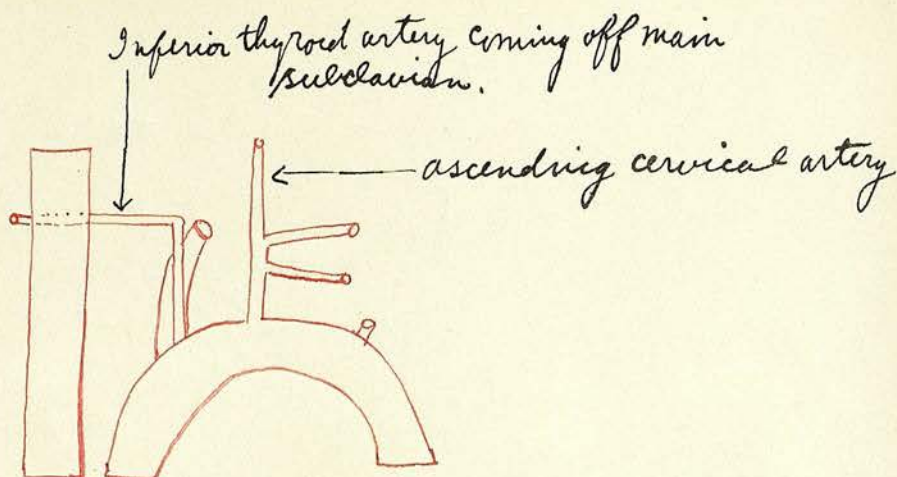 Inferior thyroid artery coming off main
subclavian.
ascending cervical artery